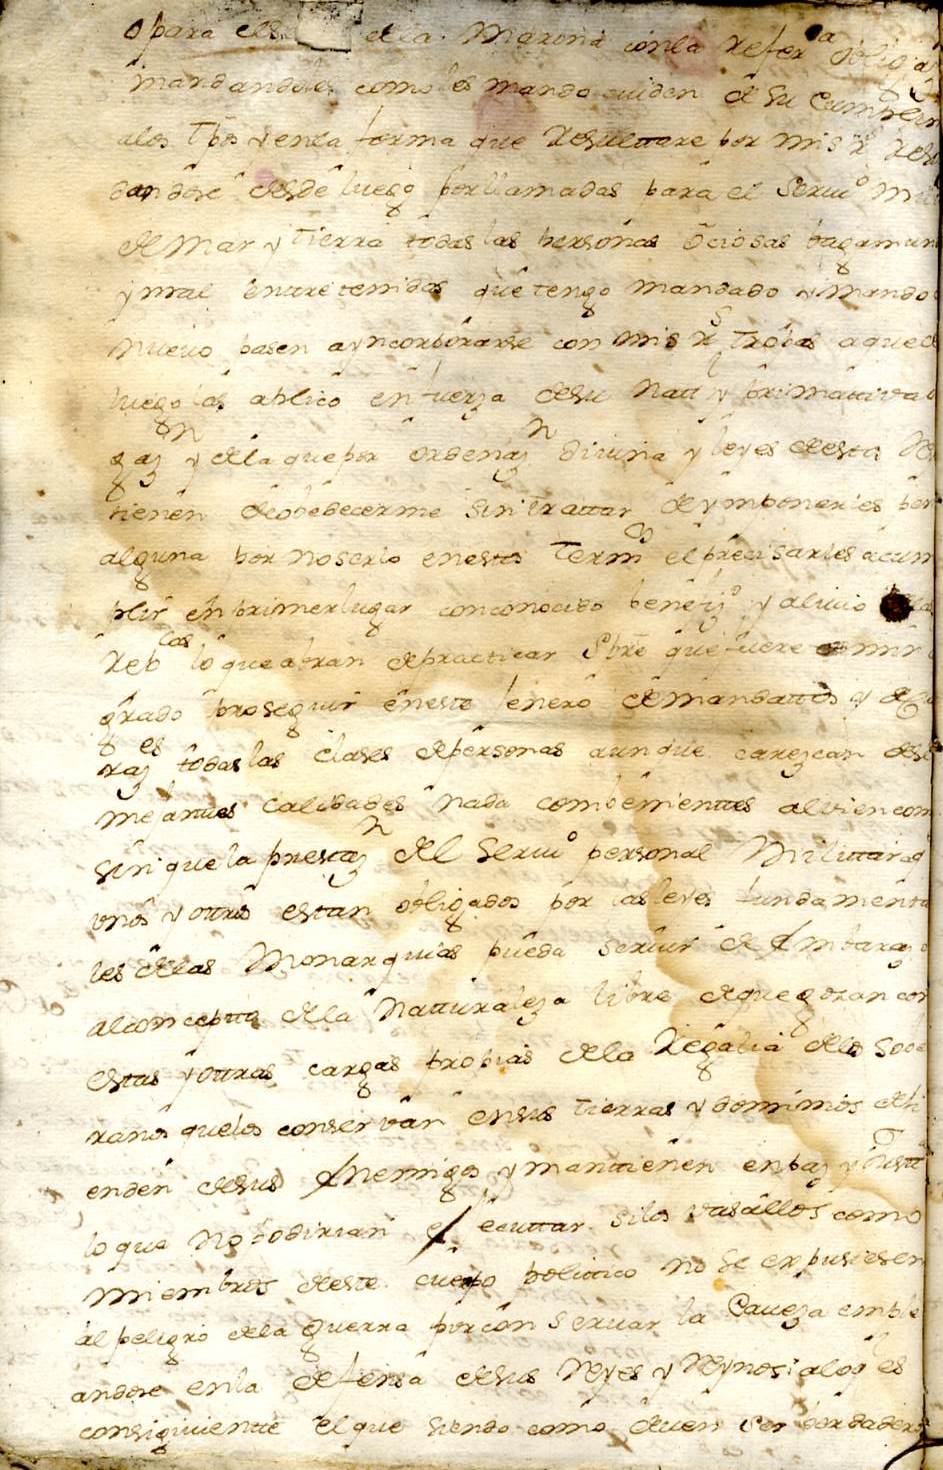 o para el de la Marona con la refer.a oblig.
mandandoles como les mando cuiden de su Cumplim
a los tpos y en la forma que Resultare por mis R.s
dandose desde luego por llamadas para el Serui.o Mi
de Mar y tierra todas las personas Ociosas bagamun
y mal entretenidas que tengo mandado y Mando
nueuo pasen a yncorporarse con mis R.s Tropas a que de
luego las aplico en fuerza de su Natt.l y primattiva
gaz.n y de la que por ordenaz.n diuina y leyes de esta
tienen de obedecerme sin trattar de ymponerles
alguna por no serlo en estos term.os el precisarles a cum
plir en primer lugar con conocido benefi.o y aliuio
reb.cas lo que abran de practicar Sbre que fuere mi R
grado proseguir en este Jenero de mandattos y de
raz.es todas las Clases de personas aunque carezcan de se
mejantes Calidades nada combenienttes al vien com
sin que la prestaz.n del Serui.o personal Milittar a q
vnos y ottros estan obligados por las leyes fundamenta
les de las Monarquias pueda seruir de Embarazo
al concepto de la Natturaleza libre de que gozan con
estas y ottras cargas propias de la Regalia de los Sobe
ranos que los conservan en sus tierras y dominios defi
enden de sus Enemigos y manttienen en paz y Justt
lo que no podirian ejecuttar si los vasallos como
miembros de este cuerpo polittico no se expusiesen
al peligro de la guerra por conseruar la Caueza emple
andose en la defensa de sus Reyes y Reynos: a lo q.l es
consiguientte el que siendo como deuen ser berdadero